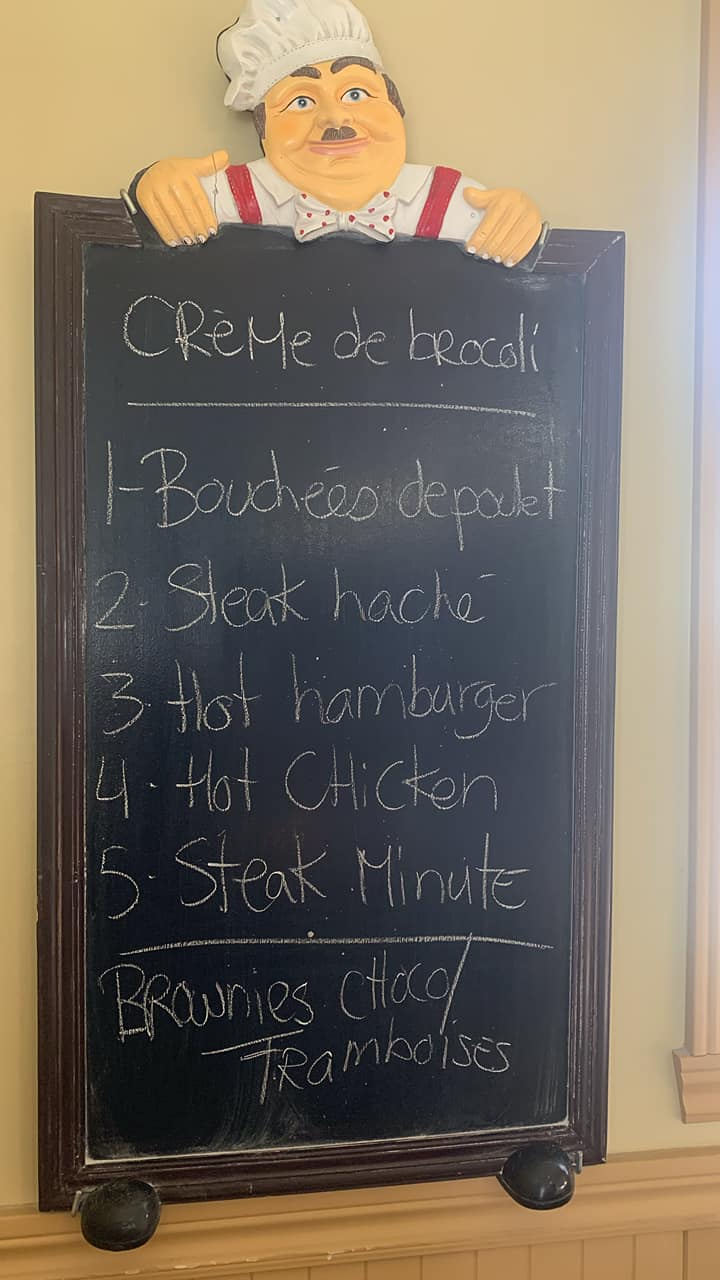 CRèMe de brocoli
1-Bouchées de poulet
2- Steak haché
3- Hot hamburger
4- Hot CHicken
5- Steak Minute
BROWNIES CHOCO/
FRamboises